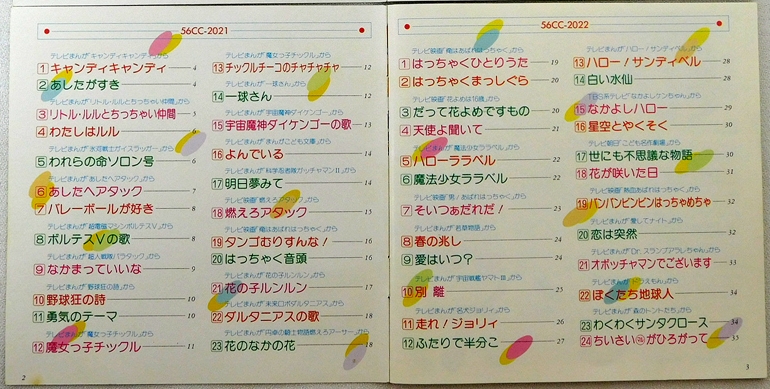 56CC-2021
テレビまんが「キャンディキャンディ」から
1 キャンディキャンディ 4
2 あしたがすき 4
テレビまんが「リトル・ルルとちっちゃい仲間」から
3 リトル・ルルとちっちゃい仲間 5
4 わたしはルル 6
テレビまんが「氷河戦士ガイスラッガー」から
5 われらの命ソロン号 6
テレビまんが「あしたへアタック」から
6 あしたへアタック 7
7 バレーボールが好き 8
テレビまんが「超電磁マシンボルテスV」から
8 ボルテスVの歌 8
テレビまんが「超人戦隊バラタック」から
9 なかまっていいな 9
テレビまんが「野球狂の詩」から
10 野球狂の詩 10
11 勇気のテーマ 10
テレビまんが「魔女っ子チックル」から
12 魔女っ子チックル 11
2
テレビまんが「魔女っ子チックル」から
13 チックルチーコのチャチャチャ 12
テレビまんが「一球さん」から
14 一球さん 12
テレビまんが「宇宙魔神ダイケンゴー」から
15 宇宙魔神ダイケンゴーの歌 13
テレビまんが「まんがこども文庫」から
16 よんでいる 14
テレビまんが「科学忍者隊ガッチャマンII」から
17 明日夢みて 14
テレビ映画「燃えろアタック」から
18 燃えろアタック 15
テレビ映画「俺はあばれはっちゃく」から
19 タンゴむりすんな! 16
20 はっちゃく音頭 16
テレビまんが「花の子ルンルン」から
21 花の子ルンルン 17
テレビまんが「未来ロボダルタニアス」から
22 ダルタニアスの歌 18
テレビまんが「円卓の騎士物語燃えろアーサー」から
23 花のなかの花 18
56CC-2022
テレビ映画「俺はあばれはっちゃく」から
1 はっちゃくひとりうた 19
2 はっちゃくまっしぐら 20
テレビ映画「花よめは16歳」から
3 だって花よめですもの 20
4 天使よ聞いて 21
テレビまんが「魔法少女ララベル」から
5 ハローララベル 22
6 魔法少女ララベル 22
テレビ映画「男!あばれはっちゃく」から
7 そいつぁだれだ! 23
テレビまんが「若草物語」から
8 春の兆し 24
9 愛はいつ? 24
テレビまんが「宇宙戦艦ヤマトIII」から
10 別離 25
テレビまんが「名犬ジョリィ」から
11 走れ!ジョリィ 26
12 ふたりで半分こ 27
テレビまんが「ハロー!サンディベル」から
13 ハロー!サンディベル 28
14 白い水仙 28
T・B系テレビ「なかよしケンちゃん」から
15 なかよしハロー 29
16 星空とやくそく 30
テレビ朝日「こども名作劇場」から
17 世にも不思議な物語 30
18 花が咲いた日 31
テレビ映画「熱血あばれはっちゃく」から
19 バンバンビンビンはっちゃめちゃ 31
テレビまんが「愛してナイト」から
20 恋は突然 32
テレビまんが「Dr.スランプアラレちゃん」から
21 オボッチャマンでございます 33
テレビまんが「ドラえもん」から
22 ぼくたち地球人 34
テレビまんが「森のトントたち」から
23 わくわくサンタクロース 34
24 ちいさい がひろがって 35
3